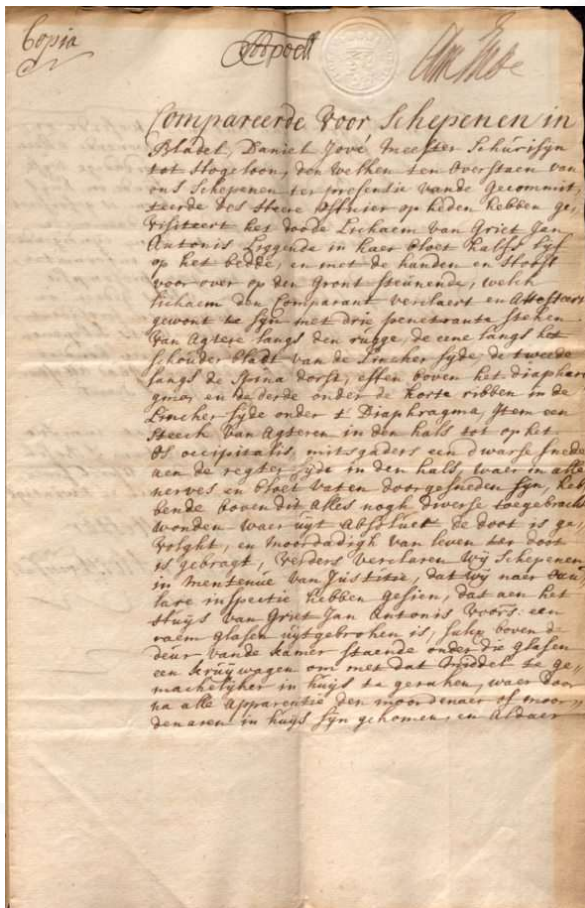 Copia
Compareerde voor Schepenen in
Bladel, Daniel Jové Meester Schürüsyn
tot Hogeloon, den welken ten overstaen van
ons Schepenen ter presensie vande gecommit,,
teerde des Heere Officier op heden hebben ge,,
visiteert het doode Lichaem van Griet Jan
Antonis Liggende in haer bloet halfs lyf
op het bedde, en met de handen en Hooft
voor over op den gront steunende, welch
Lichaem den Comparant verclaert en Attesteert
gewont te syn met drie penetrante steken
van agtere langs den rugge, de eene langs het
schouder bladt van de Lincker syde, de tweede
langs de spina dorsi, effen boven het diaphara
gma, en de derde onder de korte ribben in de
Lincker syde onder t' Diaphragma, Item een
steeck van Agteren in den hals tot op het
Os occipitalis, mitsgaders een dwarse snede
aen de regter syde in den hals, waer in alle
nerves en bloet vaten doorgesneden syn, heb
bende boven dit alles nogh diverse toegebrachte
wonden waer uyt absoluet de doot is ge,,
volght, en moordadigh van leven ter doot
is gebragt, verders verclaren wy Schepenen
in mentenue van Justitie, dat wy naer
inspectie hebben gesien, dat aen het
Huys van Griet Jan Antonis voors: een
raem glasen uytgebroken is, sulx boven de
deur vande kamer staende onder die glasen
een kruywagen om met dat middel te ge,,
mackelyker in huys te geraken, waer door
na alle apparentie den moordenaer of moor,,
denaren in huys syn gekomen, en aldaer